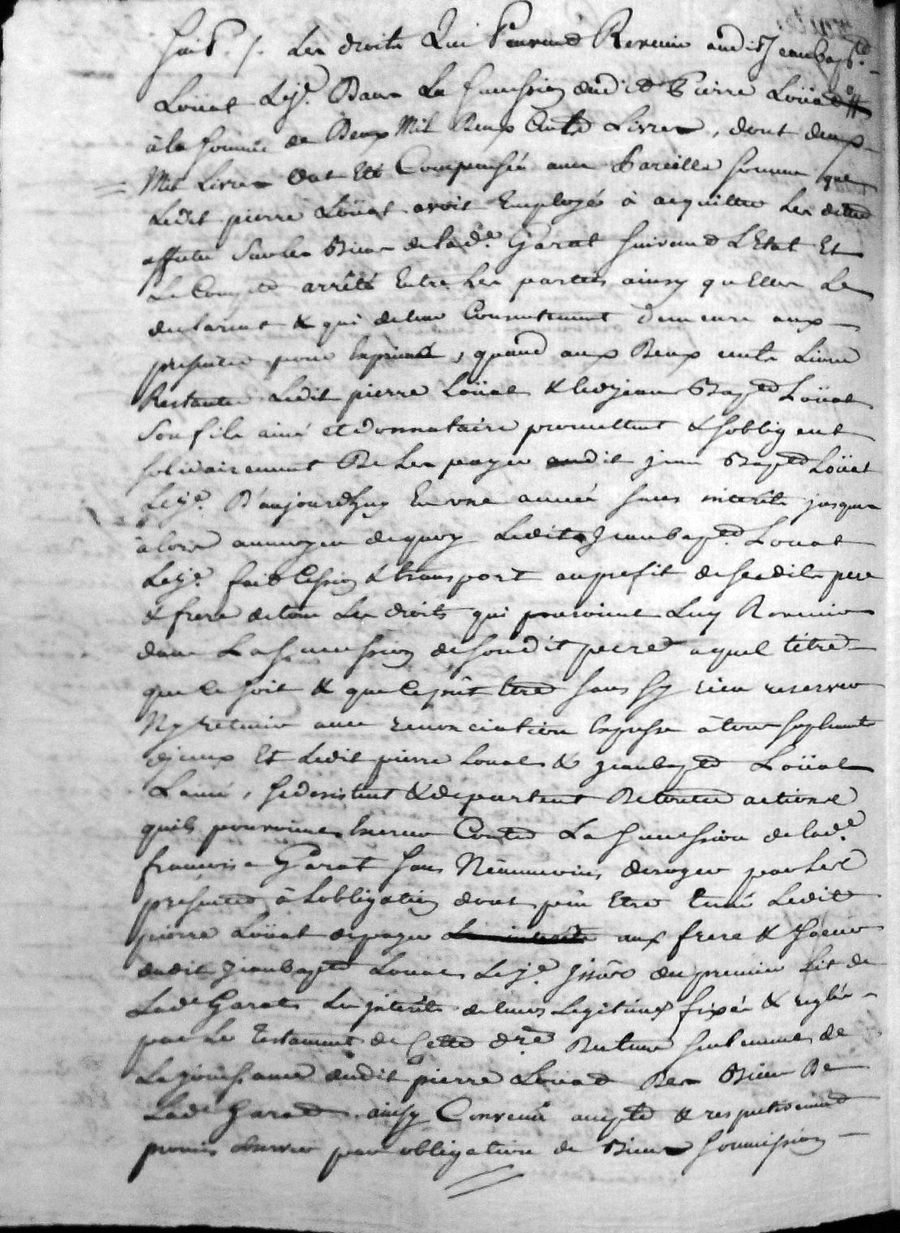 fait. /. Les droits Qui Peuvend Revenir audit Jeanbapt.d
Loüat Lej.e Dans La succession dudit Pierre Loüad
à la somme de Deux Mil Deux Cents Livres, dont deux
Mil Livres ont Eté Compensés avec Pareille somme que
Ledit pierre Loüat avoit Employés à acquitter Les dettes
affectés Sur les Biens de lad.e Garat suivand L'Etat Et
Le Compte arrêté Entre Les parties ainsy quelles Le
declarent & qui de leur Consentement demeure aux
presentes pour Exprimé, quand aux Deux cents Livres
Restantes Ledit pierre Loüat & led. jean Bapt.d Loüat
Son fils ainé et donnataire promettent & sobligent
solidairement De Les payer audit jean Bapt.d Loüat
Lej.e D'aujourdhuy En une année sans interêts jusques
à lors au moyen de quoy Ledit Jeanbapt.d Loüat
Lej.e fait Cession & transport au profit de sesdits pere
& frere de tous Les droits qui pouroient Luy Revenir
dans La succession de sondit pere à quel titre
que ce soit & que ce put etre sans sy rien reserver
Ny retenir avec renonciation Expresse à tous suplements
 Et Ledit pierre Loüat & jeanbapt.d Loüat
L'ainé, se desistent & departent De toutes actions
quils pouroient Exercer Contre La succession de lad.e
francoise Garat sans Néanmoins deroger par Les
presentes, à Lobligation dont peut Etre tenu Ledit
pierre Loüat de payer aux frere & soeur
dudit Jeanbapt.d Loüat Lej.e du premier Lit de
Lad.e Garat Les jnterêts de leurs Legitimes fixés & reglés
par Le Testament de Cette d.re seulement de
La jouissance dudit pierre Loüad Des Biens De
Lad.e Garad, ainsy Convenu accepté & respectivement
promis observer par obligation de Biens soumission